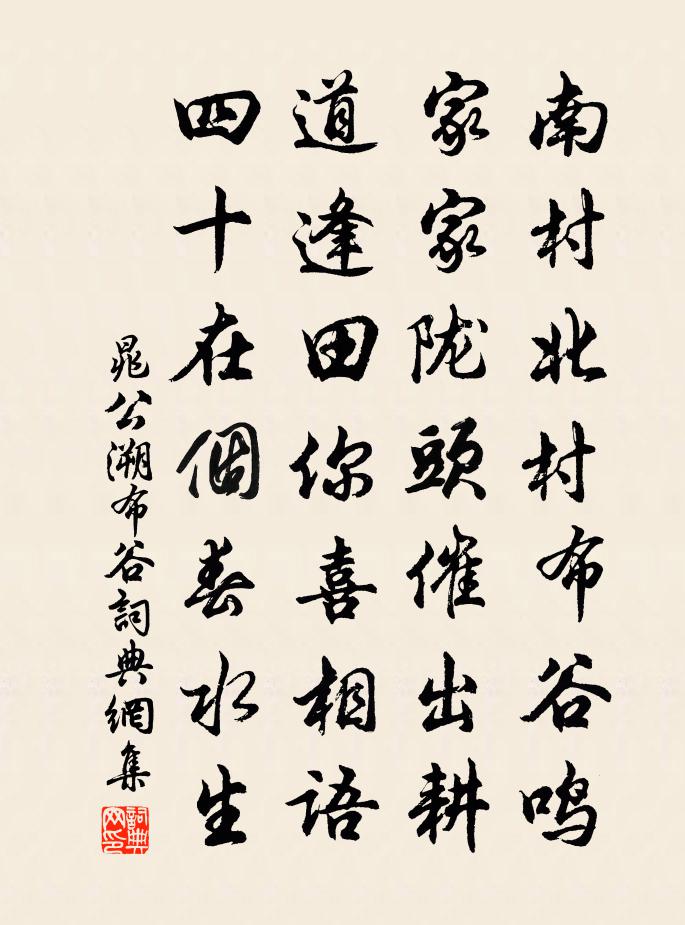 南村北村布谷鸣
家家陇頭催出耕
道逢田你喜相語
四十在個春水生
晁公溯布谷詞典網集
詞典网印